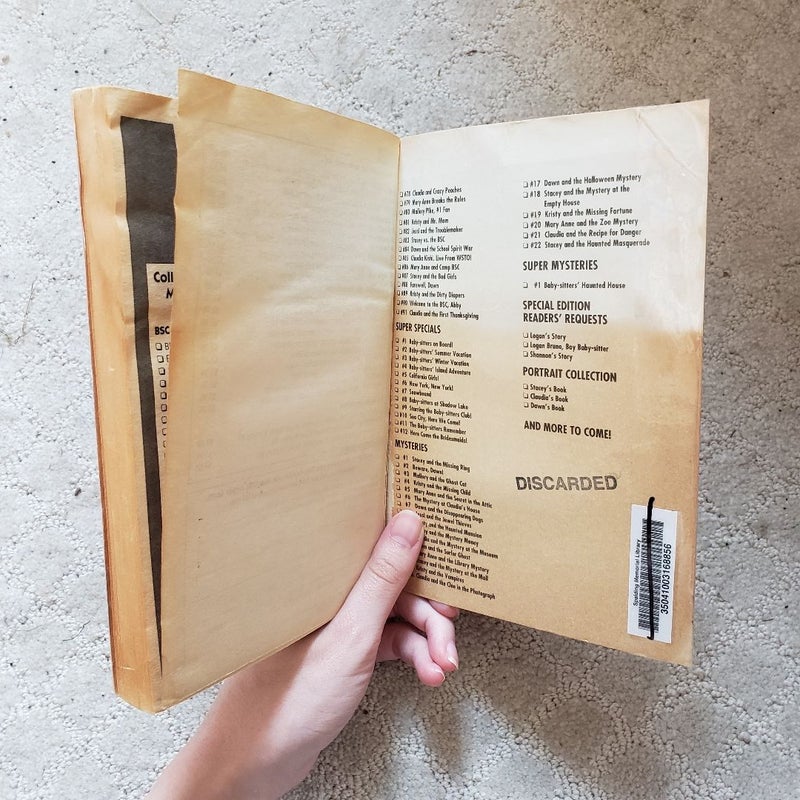 Coll
M
BSC
❑ #78 Claudia and Crazy Peaches
❑ #79 Mary Anne Breaks the Rules
❑ #80 Mallory Pike, #1 Fan
❑ #81 Kristy and Mr. Mom
❑ #82 Jessi and the Troublemaker
❑ #83 Stacey vs. the BSC
❑ #84 Dawn and the School Spirit War
❑ #85 Claudia Kishi, Live From WSTO!
❑ #86 Mary Anne and Camp BSC
❑ #87 Stacey and the Bad Girls
❑ #88 Farewell, Dawn
❑ #89 Kristy and the Dirty Diapers
❑ #90 Welcome to the BSC, Abby
❑ #91 Claudia and the First Thanksgiving
SUPER SPECIALS
❑ #1 Baby-sitters on Board!
❑ #2 Baby-sitters' Summer Vacation
❑ #3 Baby-sitters' Winter Vacation
❑ #4 Baby-sitters' Island Adventure
❑ #5 California Girls!
❑ #6 New York, New York!
❑ #7 Snowbound
❑ #8 Baby-sitters at Shadow Lake
❑ #9 Starring the Baby-sitters Club!
❑ #10 Sea City, Here We Come!
❑ #11 The Baby-sitters Remember
❑ #12 Here Come the Bridesmaids!
MYSTERIES
❑ #1 Stacey and the Missing Ring
❑ #2 Beware, Dawn!
❑ #3 Mallory and the Ghost Cat
❑ #4 Kristy and the Missing Child
❑ #5 Mary Anne and the Secret in the Attic
❑ #6 The Mystery at Claudia's House
❑ #7 Dawn and the Disappearing Dogs
and the Jewel Thieves
the Haunted Mansion
Mystery Money
the Mystery at the Museum
and the Surfer Ghost
Anne and the Library Mystery
and the Mystery at the Mall
and the Vampires
Claudia and the Clue in the Photograph
❑ #17 Dawn and the Halloween Mystery
❑ #18 Stacey and the Mystery at the
Empty House
❑ #19 Kristy and the Missing Fortune
❑ #20 Mary Anne and the Zoo Mystery
❑ #21 Claudia and the Recipe for Danger
❑ #22 Stacey and the Haunted Masquerade
SUPER MYSTERIES
❑ #1 Baby-sitters' Haunted House
SPECIAL EDITION
READERS' REQUESTS
❑ Logan's Story
❑ Logan Bruno, Boy Baby-sitter
❑ Shannon's Story
PORTRAIT COLLECTION
❑ Stacey's Book
❑ Claudia's Book
❑ Dawn's Book
AND MORE TO COME!
DISCARDED
Spalding Memorial Library
35041003168856